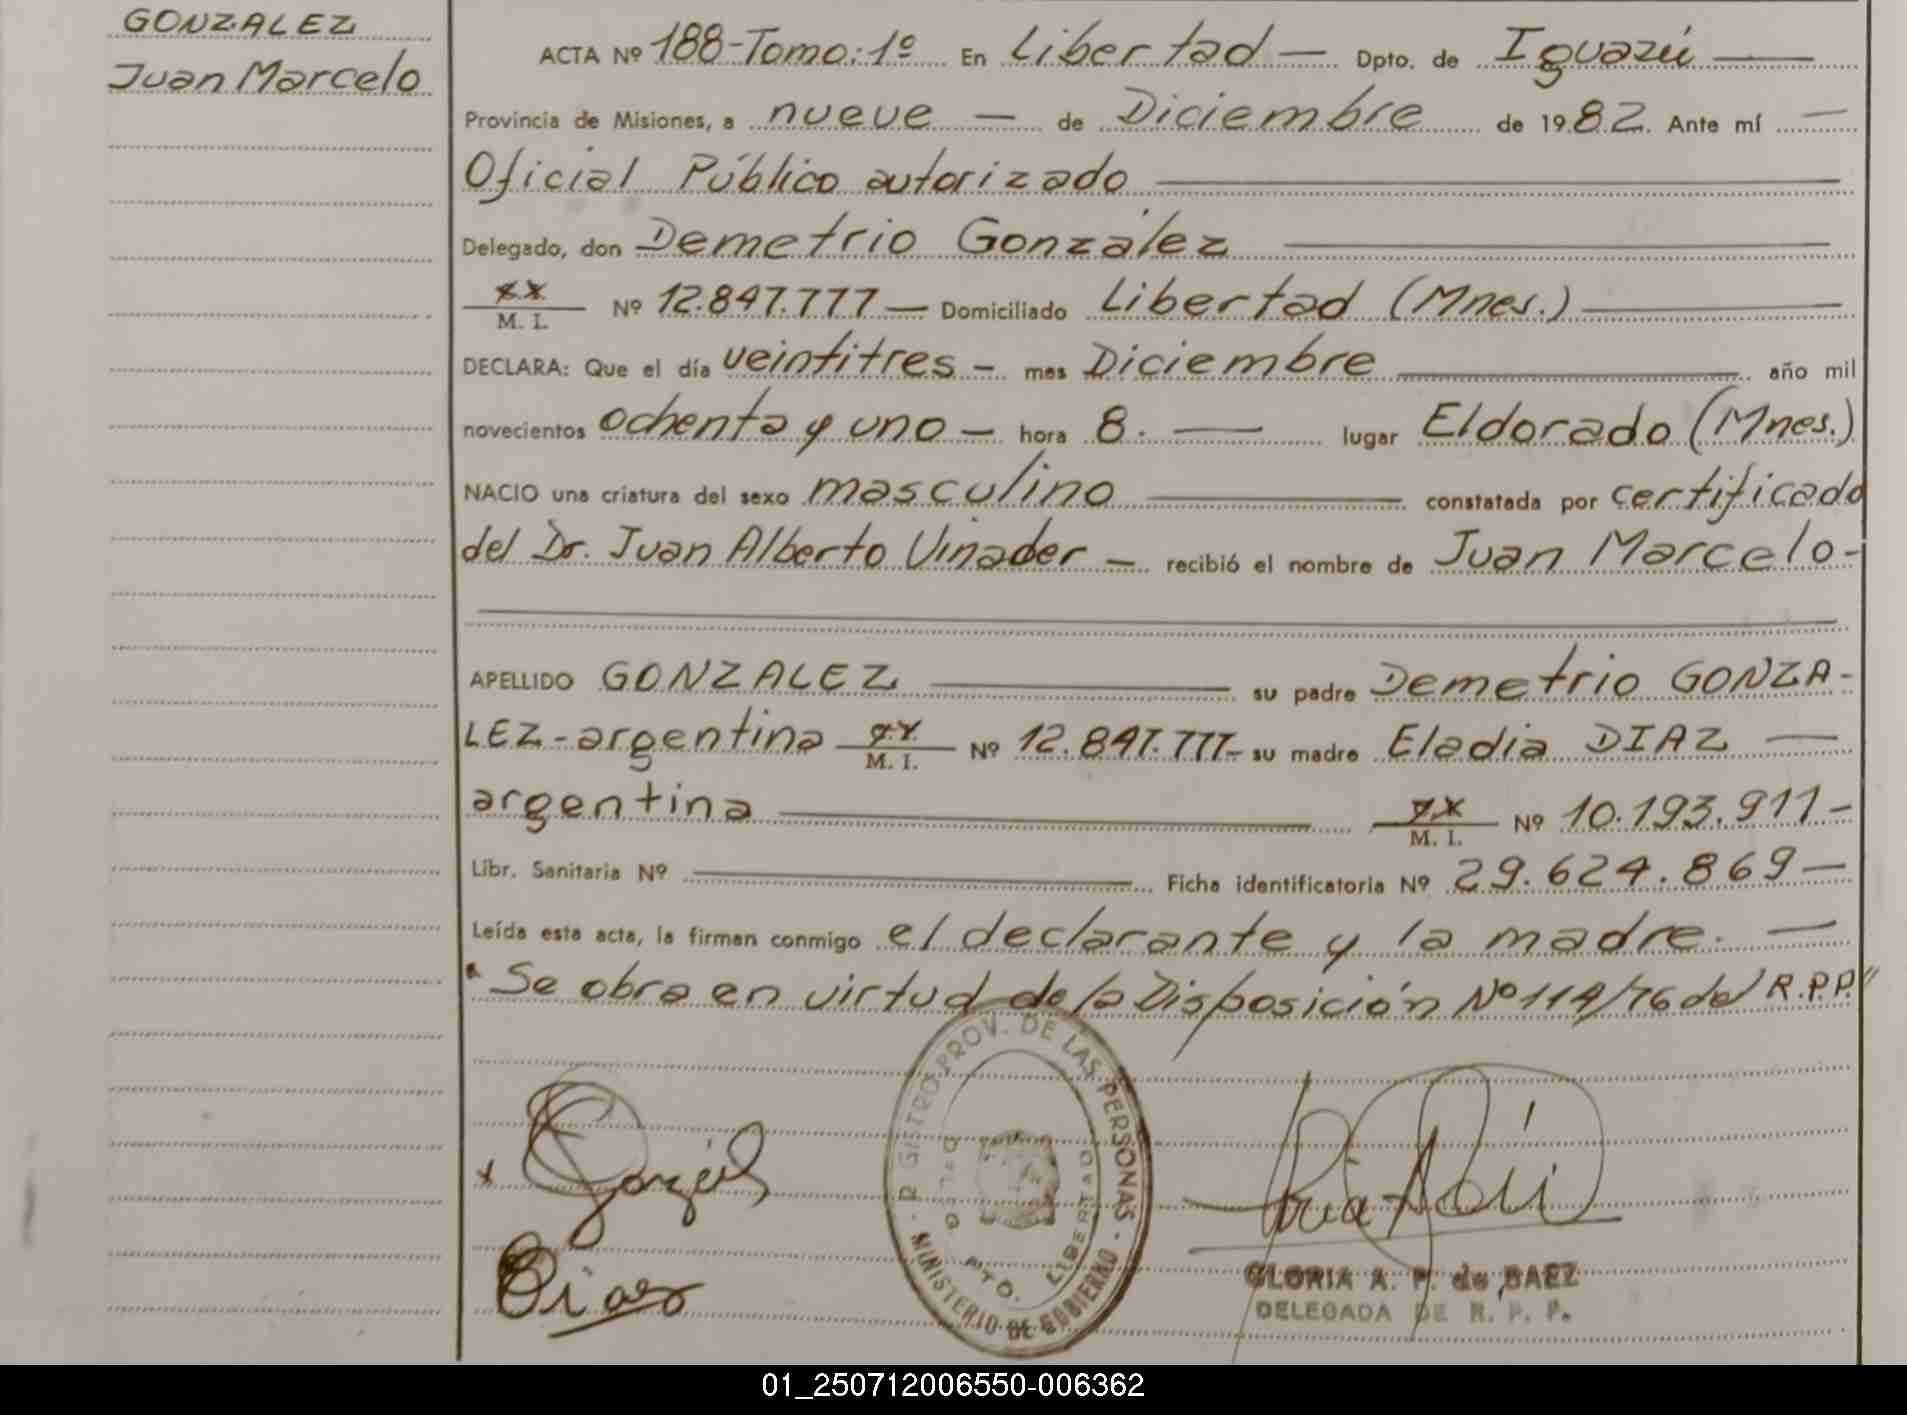 GONZALEZ
Juan Marcelo
ACTA Nº 188-Tomo:1º En Libertad — Dpto. de Iguazú —
Provincia de Misiones, a nueve — de Diciembre de 1982. Ante mí —
Oficial Público autorizado —
Delegado, don Demetrio González —
M. I. Nº 12.847.777 — Domiciliado Libertad (Mnes.) —
DECLARA: Que el día veintitres - mes Diciembre — año mil
novecientos ochenta y uno — hora 8. — lugar Eldorado (Mnes.)
NACIO una criatura del sexo masculino — constatada por certificado
del Dr. Juan Alberto Vinader — recibió el nombre de Juan Marcelo-
APELLIDO GONZALEZ — su padre Demetrio GONZA-
LEZ-argentina M. I. Nº 12.847.777- su madre Eladia DIAZ —
argentina — M. I. Nº 10.193.911-
Libr. Sanitaria Nº — Ficha identificatoria Nº 29.624.869—
Leída esta acta, la firman conmigo el declarante y la madre. —
"Se obra en virtud de la Disposición Nº 114/76 del R.P.P."
REGISTRO PROV. DE LAS PERSONAS
MINISTERIO DE GOBIERNO
PTO. LIBERTAD
Diaz
GLORIA A. P. de BAEZ
DELEGADA DE R. P. P.
01_250712006550-006362